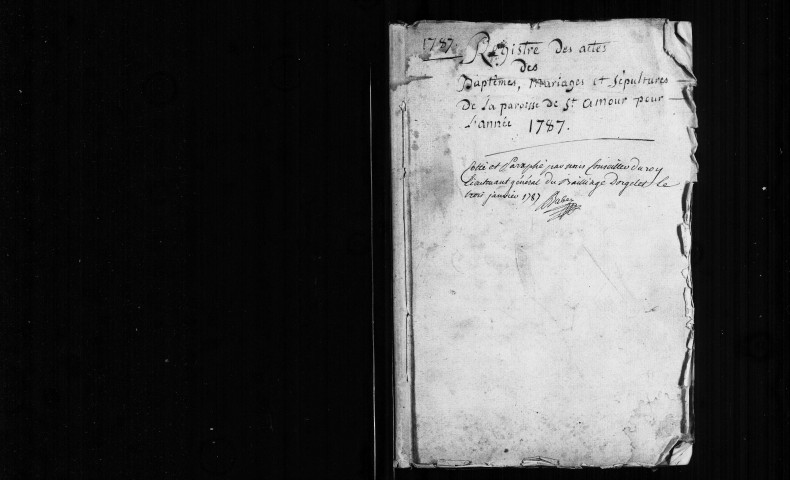 1787
Registre Des actes
des
Baptêmes, Mariages et Sépultures
De la paroisse de St Amour pour
L'année 1787.
Cotté et Paraphé par nous Conseiller du roy
Lieutenant général du Bailliage Dorgelet le
trois janvier 1787